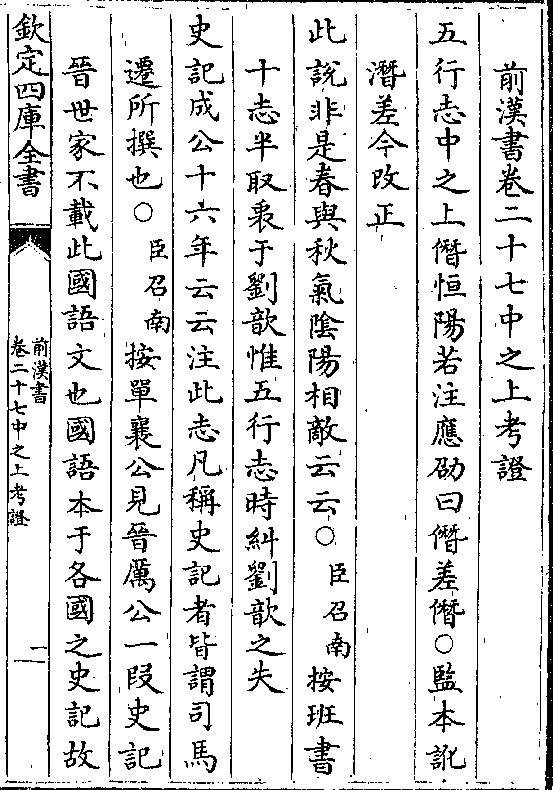 前漢書卷二十七中之上考證
五行志中之上僭恒陽若注應劭曰僭差僭○監本訛
潛差今改正
此說非是春與秋氣陰陽相敵云云○臣召南按班書
十志半取衷于劉歆惟五行志時糾劉歆之失
史記成公十六年云云注此志凡稱史記者皆謂司馬
遷所撰也○臣召南按單襄公見晉厲公一段史記
晉世家不載此國語文也國語本于各國之史記故
欽定四庫全書
前漢書
卷二十七中之上考證
一